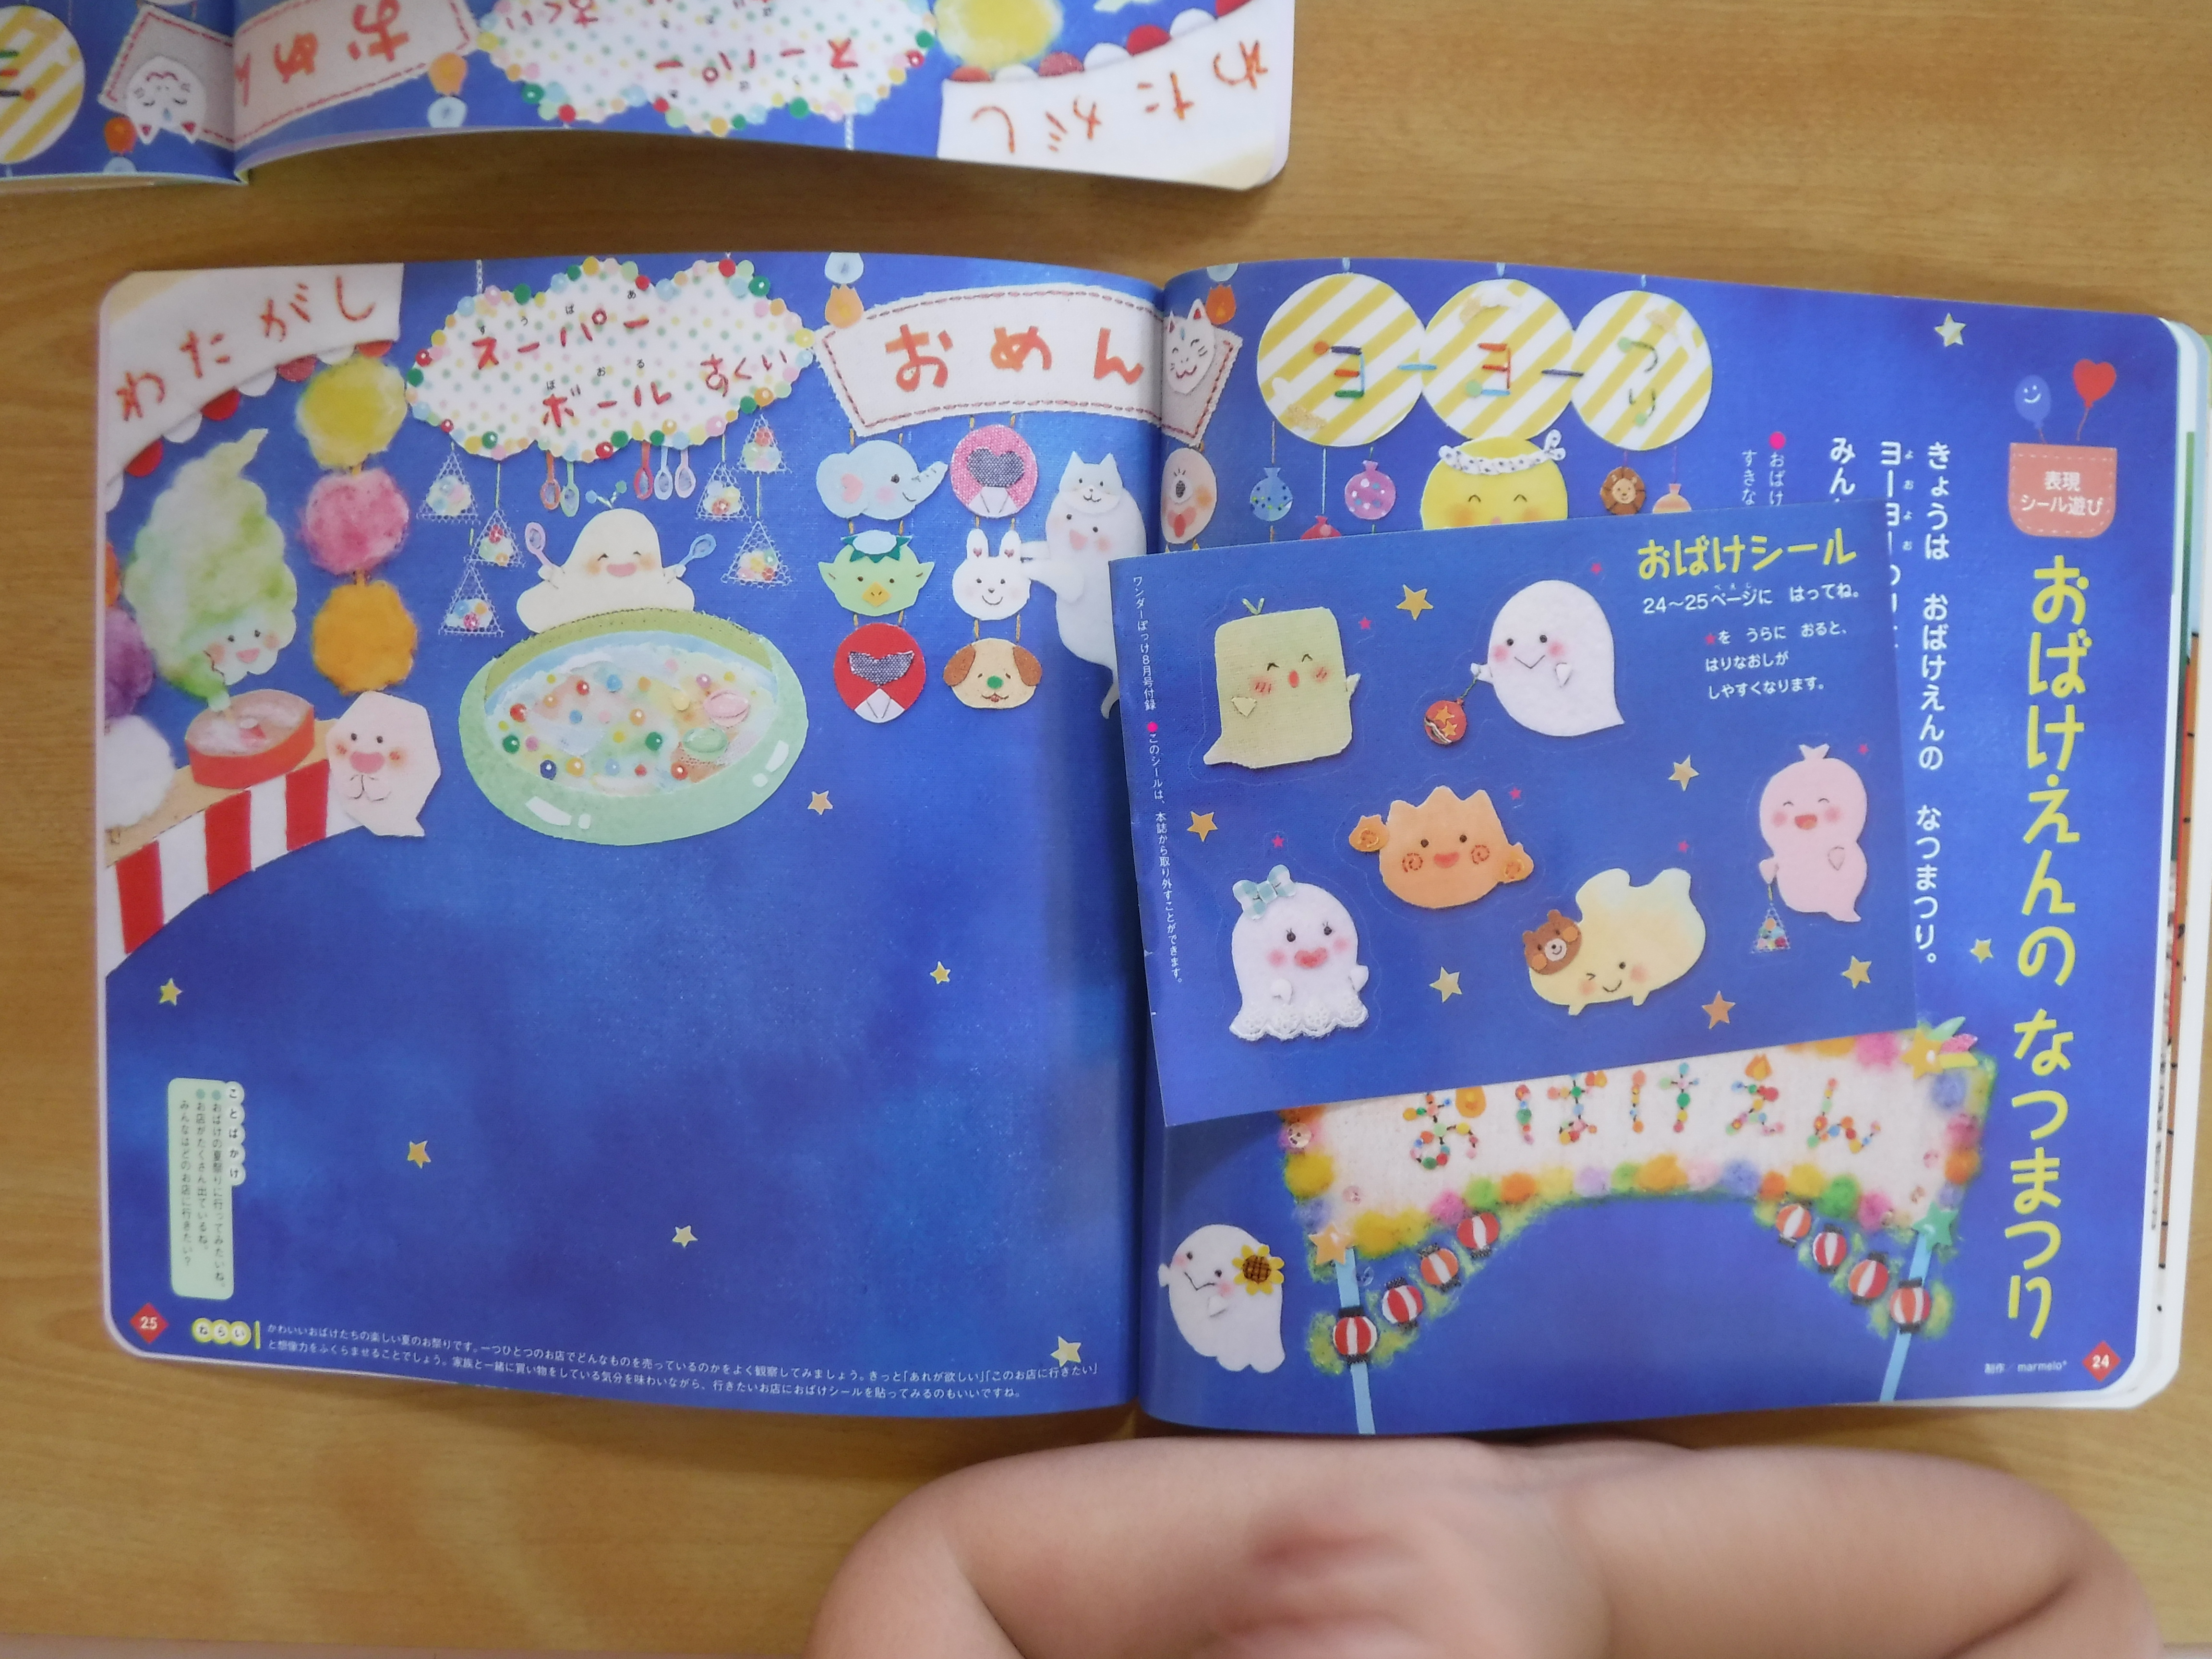 表現
シール遊び
おばけえんの なつまつり
きょうは おばけえんの なつまつり。
みん
おばけ
すきな
ヨーヨーつり
おめん
スーパー
すうぱあ
ボールすくい
ぼおる
わたがし
おばけシール
24〜25ページに はってね。
ぺえじ
★を うらに おると、
はりなおしが
しやすくなります。
ワンダーぽっけ8月号付録 ●このシールは、本誌から取り外すことができます。
おばけえん
制作/marmelo*
24
ことばかけ
●おばけの夏祭りに行ってみたいね。
●お店がたくさん出ているね。
みんなはどのお店に行きたい?
25
ねらい
かわいいおばけたちの楽しい夏のお祭りです。一つひとつのお店でどんなものを売っているのかをよく観察してみましょう。きっと「あれが欲しい」「このお店に行きたい」
と想像力をふくらませることでしょう。家族と一緒に買い物をしている気分を味わいながら、行きたいお店におばけシールを貼ってみるのもいいですね。
おめん
スーパー
すくい
わたがし